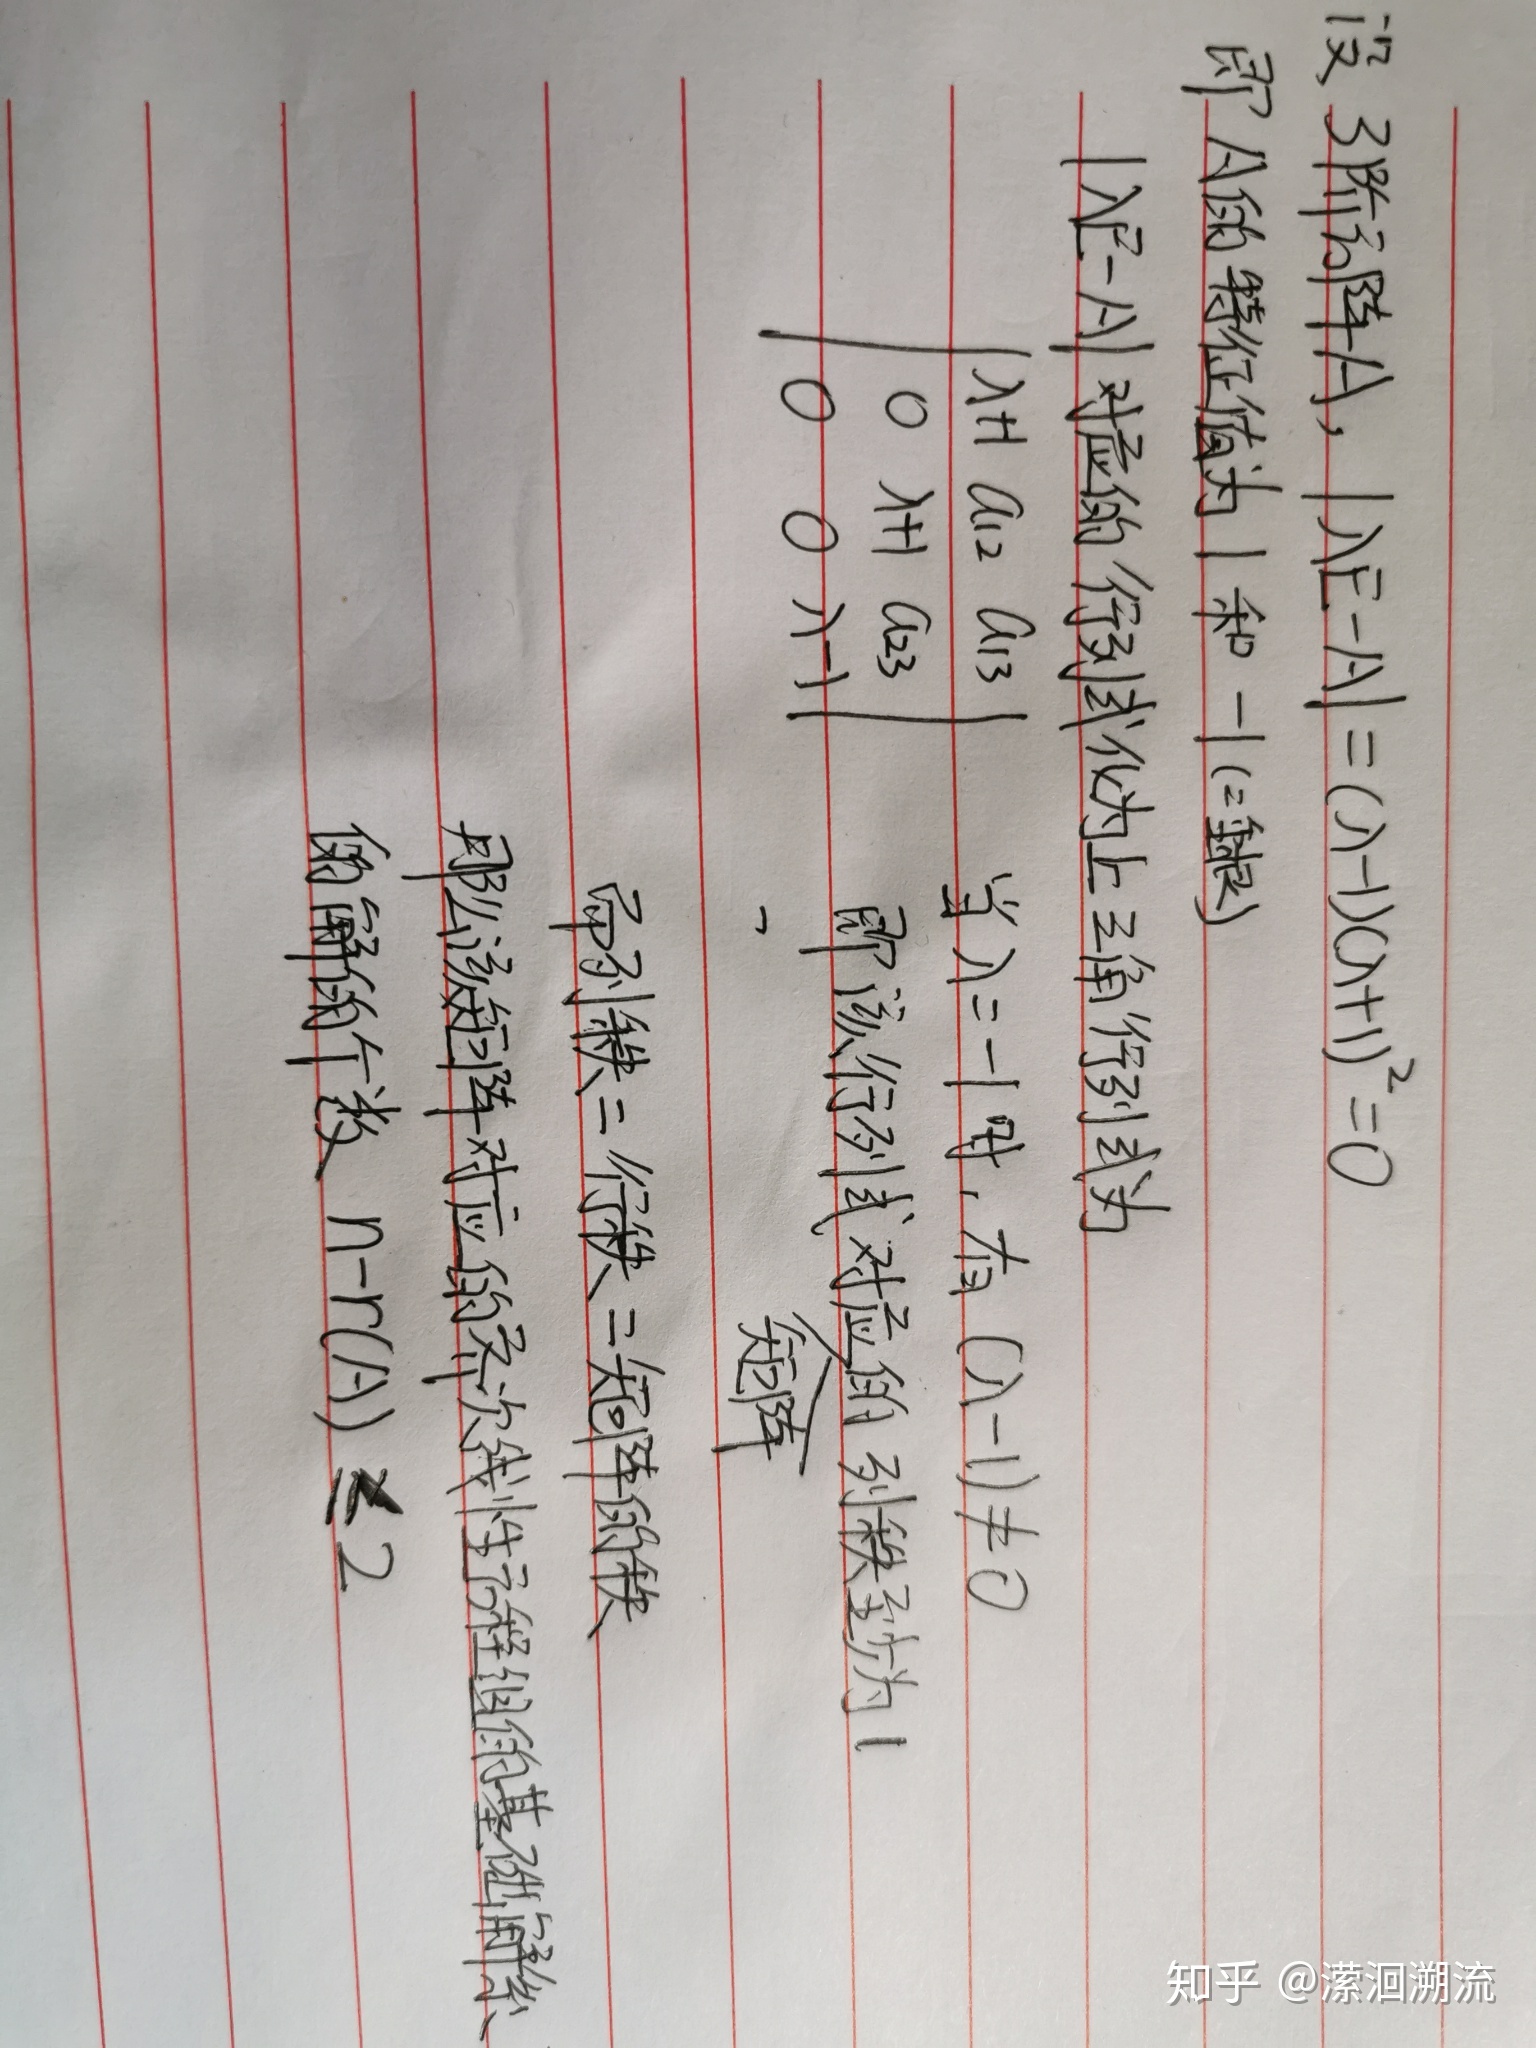 设 3阶方阵A, |λE-A| = (λ-1)(λ+1)² = 0
即 A的特征值为 1 和 -1 (二重根)
|λE-A| 对应的行列式化为上三角行列式为
λ+1 a12 a13
0 λ+1 a23
0 0 λ-1
当 λ = -1 时, 有 (λ-1) ≠ 0
即该行列式对应的列秩至少为1
矩阵
而列秩 = 行秩 = 矩阵的秩
那么该矩阵对应的齐次线性方程组的基础解系
的解的个数 n-r(A) ≤ 2
知乎 @潆洄溯流